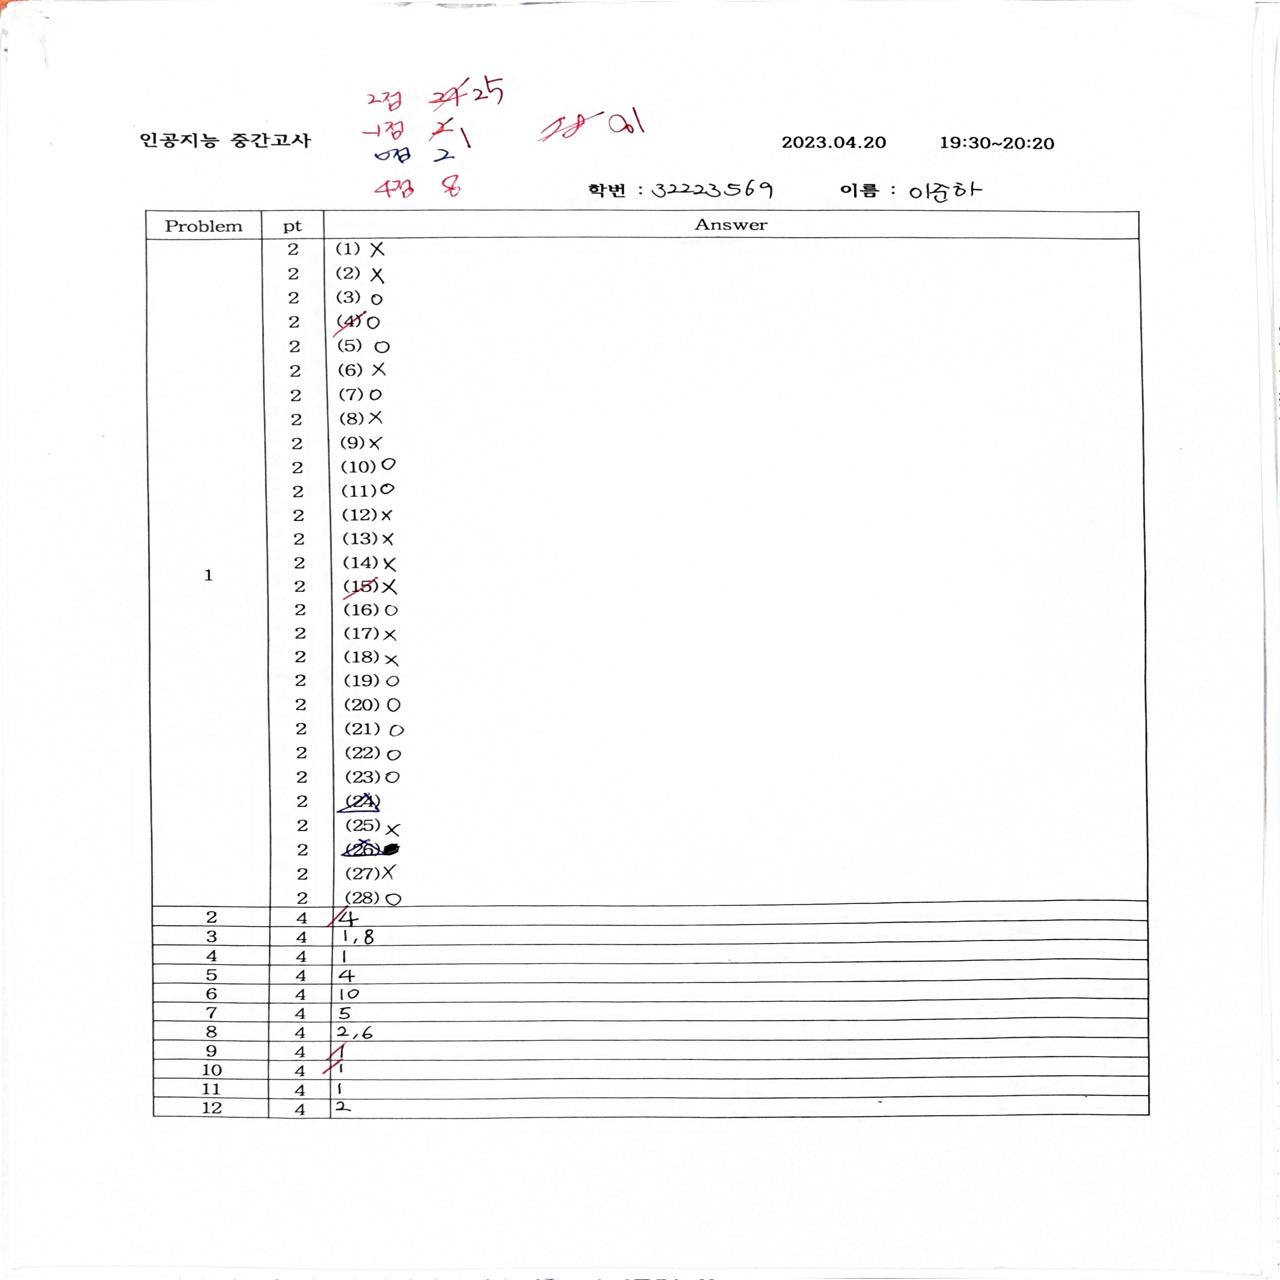 2점 24 25
인공지능 중간고사 -1점 2 1 58 81 2023.04.20 19:30~20:20
0점 2
4점 8 학번 : 32223569 이름 : 이준하
Problem pt Answer
2 (1) X
2 (2) X
2 (3) O
2 (4) O
2 (5) O
2 (6) X
2 (7) O
2 (8) X
2 (9) X
2 (10) O
2 (11) O
2 (12) X
2 (13) X
2 (14) X
1
2 (15) X
2 (16) O
2 (17) X
2 (18) X
2 (19) O
2 (20) O
2 (21) O
2 (22) O
2 (23) O
2 (24)
2 (25) X
2 (26)
2 (27) X
2 (28) O
2 4 4
3 4 1,8
4 4 1
5 4 4
6 4 10
7 4 5
8 4 2,6
9 4 1
10 4 1
11 4 1
12 4 2